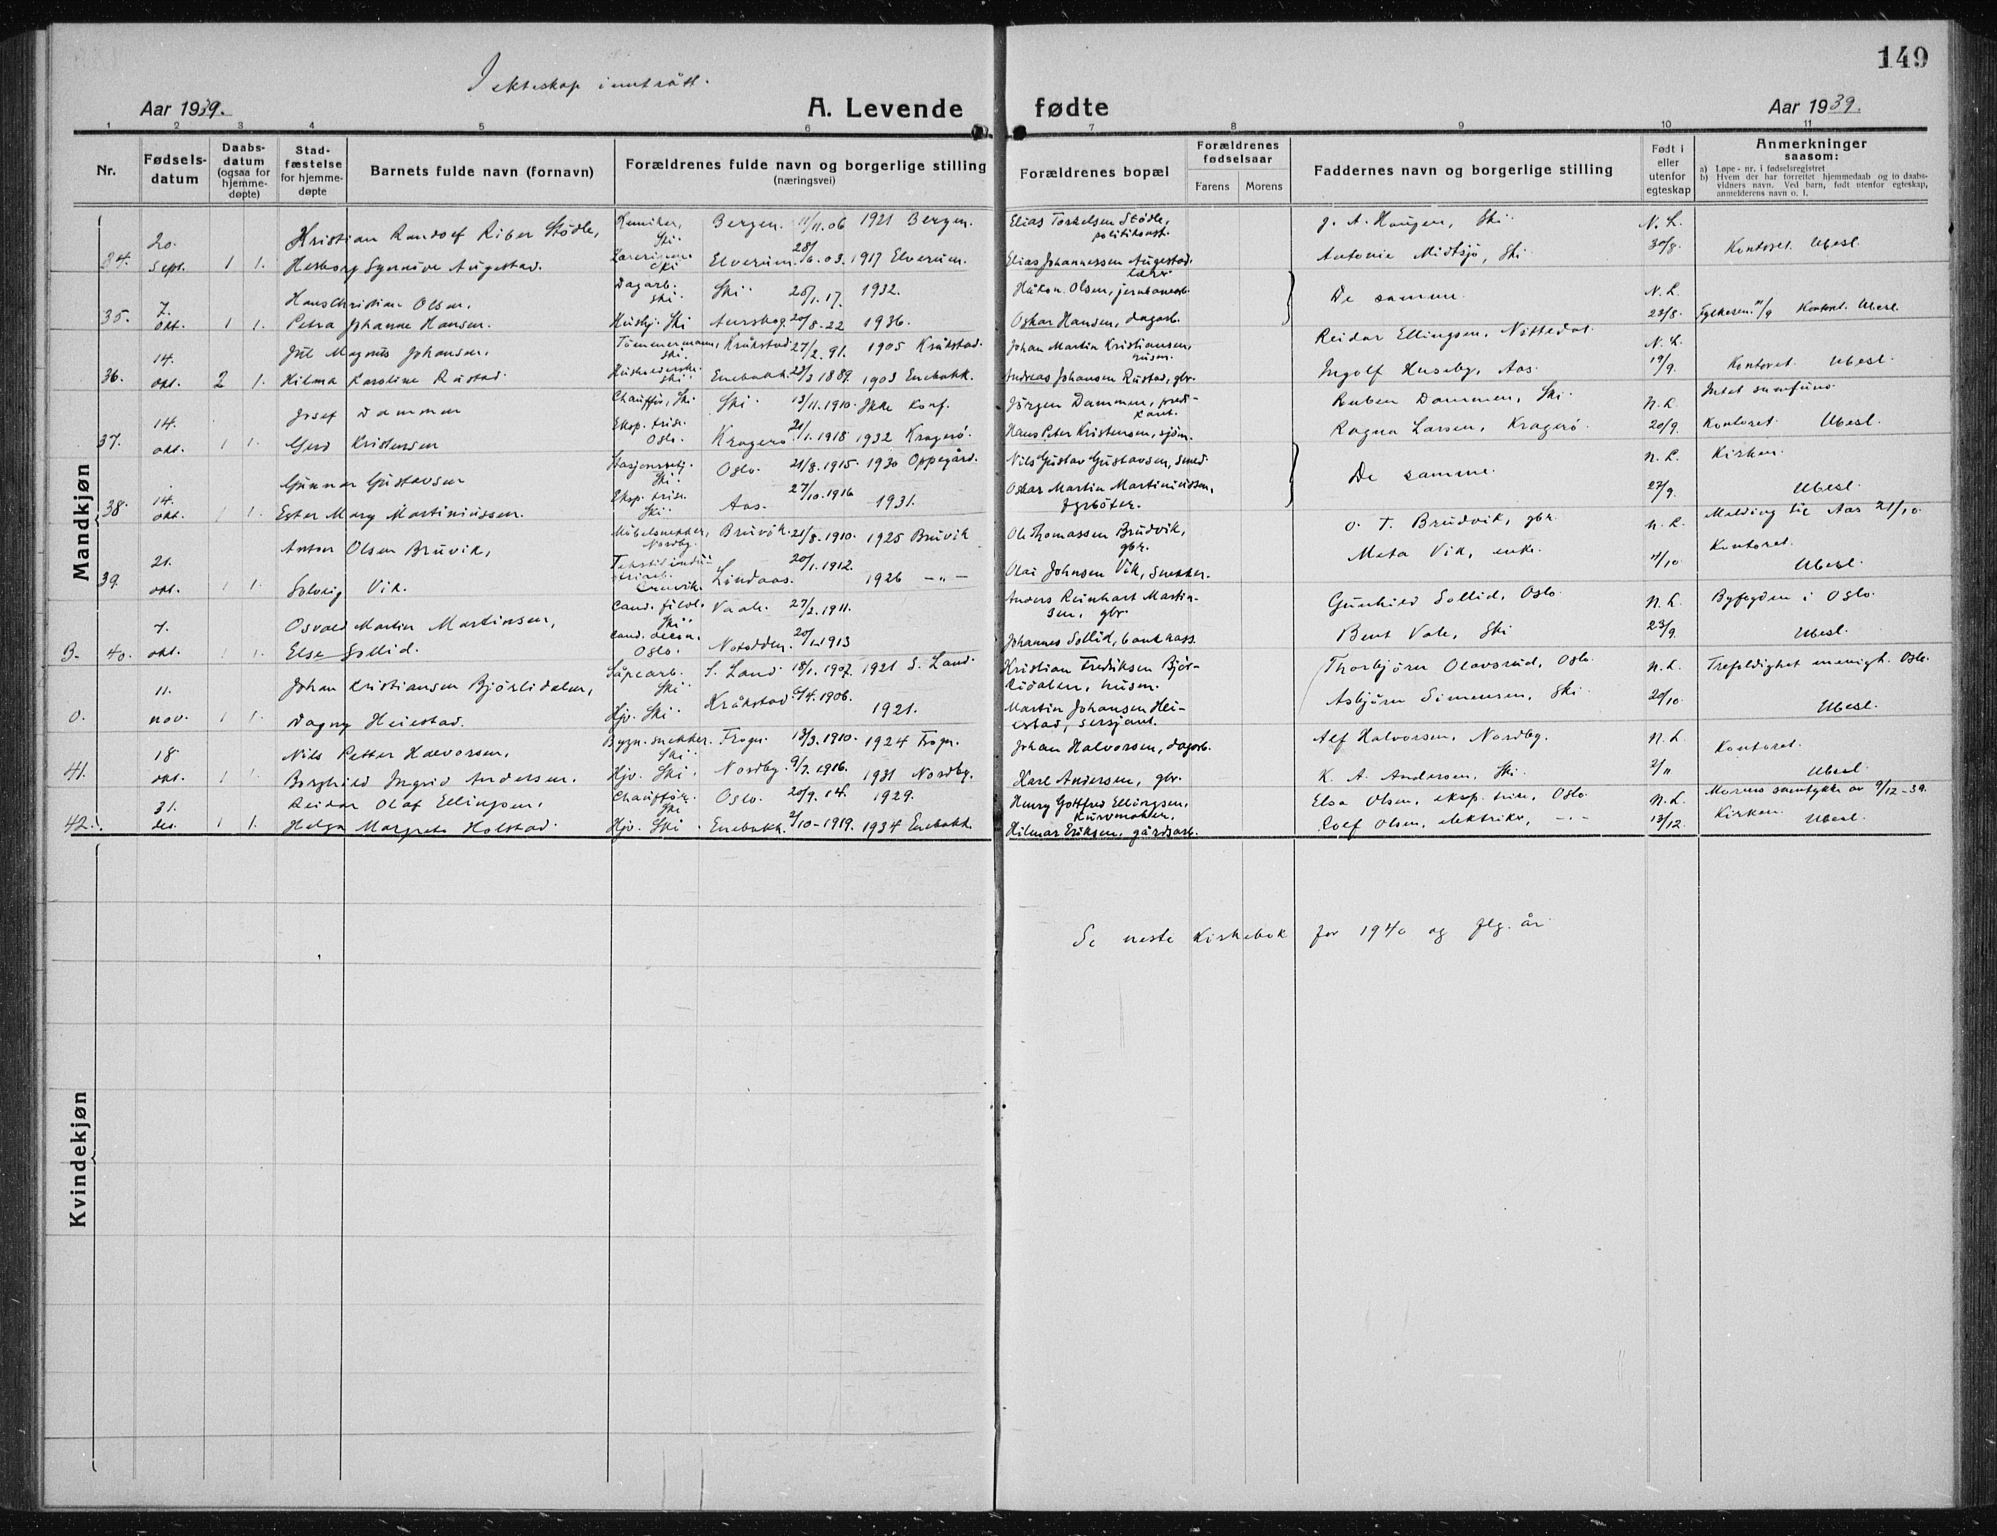 149
I ekteskap inntrått.
Aar 1939. A. Levende fødte Aar 1939.
1 2 3 4 5 6 7 8 9 10 11
Nr. Fødselsdatum Daabsdatum (ogsaa for hjemmedøpte) Stadfæstelse for hjemmedøpte Barnets fulde navn (fornavn) Forældrenes fulde navn og borgerlige stilling (næringsvei) Forældrenes bopæl Forældrenes fødselsaar Farens Morens Faddernes navn og borgerlige stilling Født i eller utenfor egteskap Anmerkninger saasom:
a) Løpe-nr. i fødselsregistret
b) Hvem der har forrettet hjemmedaab og to daabsvidners navn. Ved barn, født utenfor egteskap, anmelderens navn o. l.
Mandkjøn
20. Kristian Randolf Riber Stödle, Kemiker, Ski. Bergen 11/11.06 1921 Bergen. Elias Torkelsen Stödle, politikonst. J. A. Haugen, Ski. N.L.
34. Sept. 1 1. Herborg Synnöve Augestad. Ski Elverum 28/6.03. 1917 Elverum. Elias Johannessen Augestad, lærer Antonie Midtsjö, Ski 30/8 Kontoret. Ubesl.
7. Hans Christian Olsen. Dagarb. Ski. Ski 1932. Håkon Olsen, jernbanearb. De samme. N.L.
35. okt. 1 1. Petra Johanne Hansen. Hushj. Ski Aurskog. 20/8.22 1936. Oskar Hansen, dagarb. 23/8. Kontoret. Ubesl.
14. Jul Magnus Johansen, Tömmermann, Ski. Kråkstad. 27/2.91. 1905 Kråkstad. Johan Martin Kristiansen, husm. Reidar Ellingsen, Nittedal N.L.
36. okt. 2 1. Hilma Karoline Rustad. Ski Enebakk 1889. 1903 Enebakk. Andreas Johansen Rustad, gbr. Ingolf Huseby, Aas. 19/9. Kontoret Ubesl.
14. Josef Dammen Chauffør, Ski Ski. 13/11.1910. Ikke konf. Jörgen Dammen, predikant. Ruben Dammen, Ski. N.L. Intet samfund
37. okt. 1 1. Gerd Kristensen Eksp. trise. Oslo. Kragerö 21/1.1918 1932 Kragerö. Hans Peter Kristensen, sjöm. Ragna Larsen, Kragerö. 20/9. Kontoret. Ubesl.
14. Gunnar Gustavsen Stasjonsbetj. Ski. Oslo. 21/8.1915. 1930 Oppegård. Nils Gustav Gustavsen, smed. De samme. N.L. Kirken.
38. okt. 1 1. Ester Mary Martiniussen. Eksp. trise. Ski. Aas. 27/10.1916 1931. Oskar Martin Martiniussen, fyrböter. 27/9. Ubesl.
21. Anton Olsen Bruvik, Möbelsnekker, Nordby. Bruvik. 21/8.1910. 1925 Bruvik Ole Thomassen Brudvik, gbr. O. T. Brudvik, gbr. N.L. Melding til Aas 21/10.
39. okt. 1 1. Solveig Vik. Lindaas. 20/1.1912. 1926 -"- Olai Johnsen Vik, snekker. Meta Vik, enke. 4/10 Kontoret. Ubesl.
7. Osvald Martin Martinsen, Cand. filol. Ski Vaale. 27/2.1911. Anders Reinhart Martinsen, gbr Gunhild Sollid, Oslo N.L. Byfogden i Oslo
B. 40. okt. 1 1. Else Sollid. Cand. oecon. Oslo. Notodden. 1913 Johannes Sollid, bankkass. Bent Vale, Ski 23/9. Ubesl.
11. Johan Kristiansen Björlidalen, Såpearb. Ski S. Land 18/1.1907. 1921 S. Land. Kristian Fredriksen Björlidalen, husm. Thorbjörn Olavsrud, Oslo N.L. Trefoldighet menigh. Oslo.
0. nov. 1 1. Dagny Heiestad. Hjv. Ski. Kråkstad 1906. 1921. Martin Johansen Heiestad, sersjant. Asbjörn Simensen, Ski. 20/10. Ubesl.
18 Nils Petter Halvorsen, Bygn. snekker. Ski. Frogn. 13/3.1910. 1924 Frogn. Johan Halvorsen, dagarb. Alf Halvorsen, Nordby. N.L. Kontoret.
41. okt. 1 1. Borghild Ingrid Andersen. Hjv. Ski. Nordby. 9/7.1916. 1931 Nordby. Karl Andersen, gbr. K. A. Andersen, Ski. 2/11 Ubesl.
31. Reidar Olaf Ellingsen, Chauffør. Ski Oslo. 20/9.14. 1929. Henry Gottfred Ellingsen, kurvmaker, Elsa Olsen, eksp. trise, Oslo N.L. Morens samtykke av 9/12-39.
42. des. 1 1. Helga Margrete Holstad. Hjv. Ski. Enebakk. 2/10-1919. 1934 Enebakk. Hilmar Eriksen, gårdsarb. Rolf Olsen, elektriker, -"- 13/12. Kirken Ubesl.
Se neste kirkebok for 1940 og flg. år
Kvindekjøn